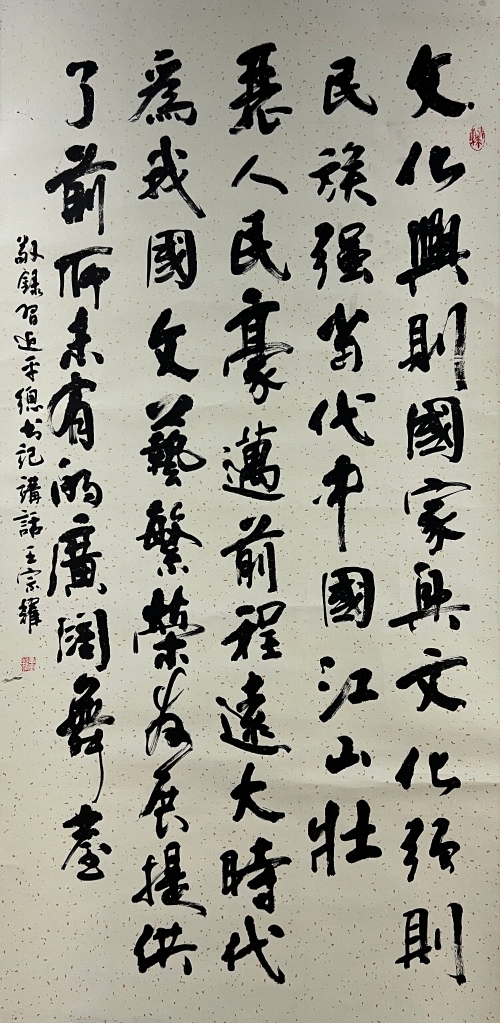 文化興則國家興文化强則
民族强當代中國江山壯
麗人民豪邁前程遠大時代
爲我國文藝繁榮發展提供
了前所未有的廣闊舞臺
敬錄習近平總書記講話王宗耀